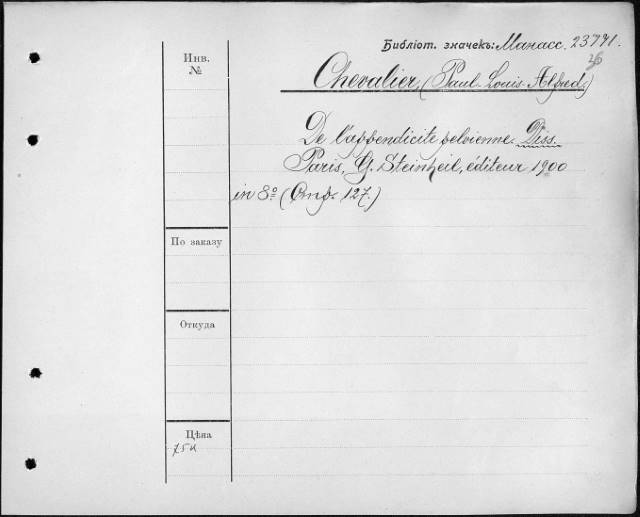 Библіот. значекъ: Манасс. 23771.
26
Инв.
№
Chevalier, (Paul-Louis-Alfred.)
De l'appendicite pelvienne. Diss.
Paris, G. Steinheil, éditeur 1900
in 8º (Стр. 127.)
По заказу
Откуда
Цѣна
75к